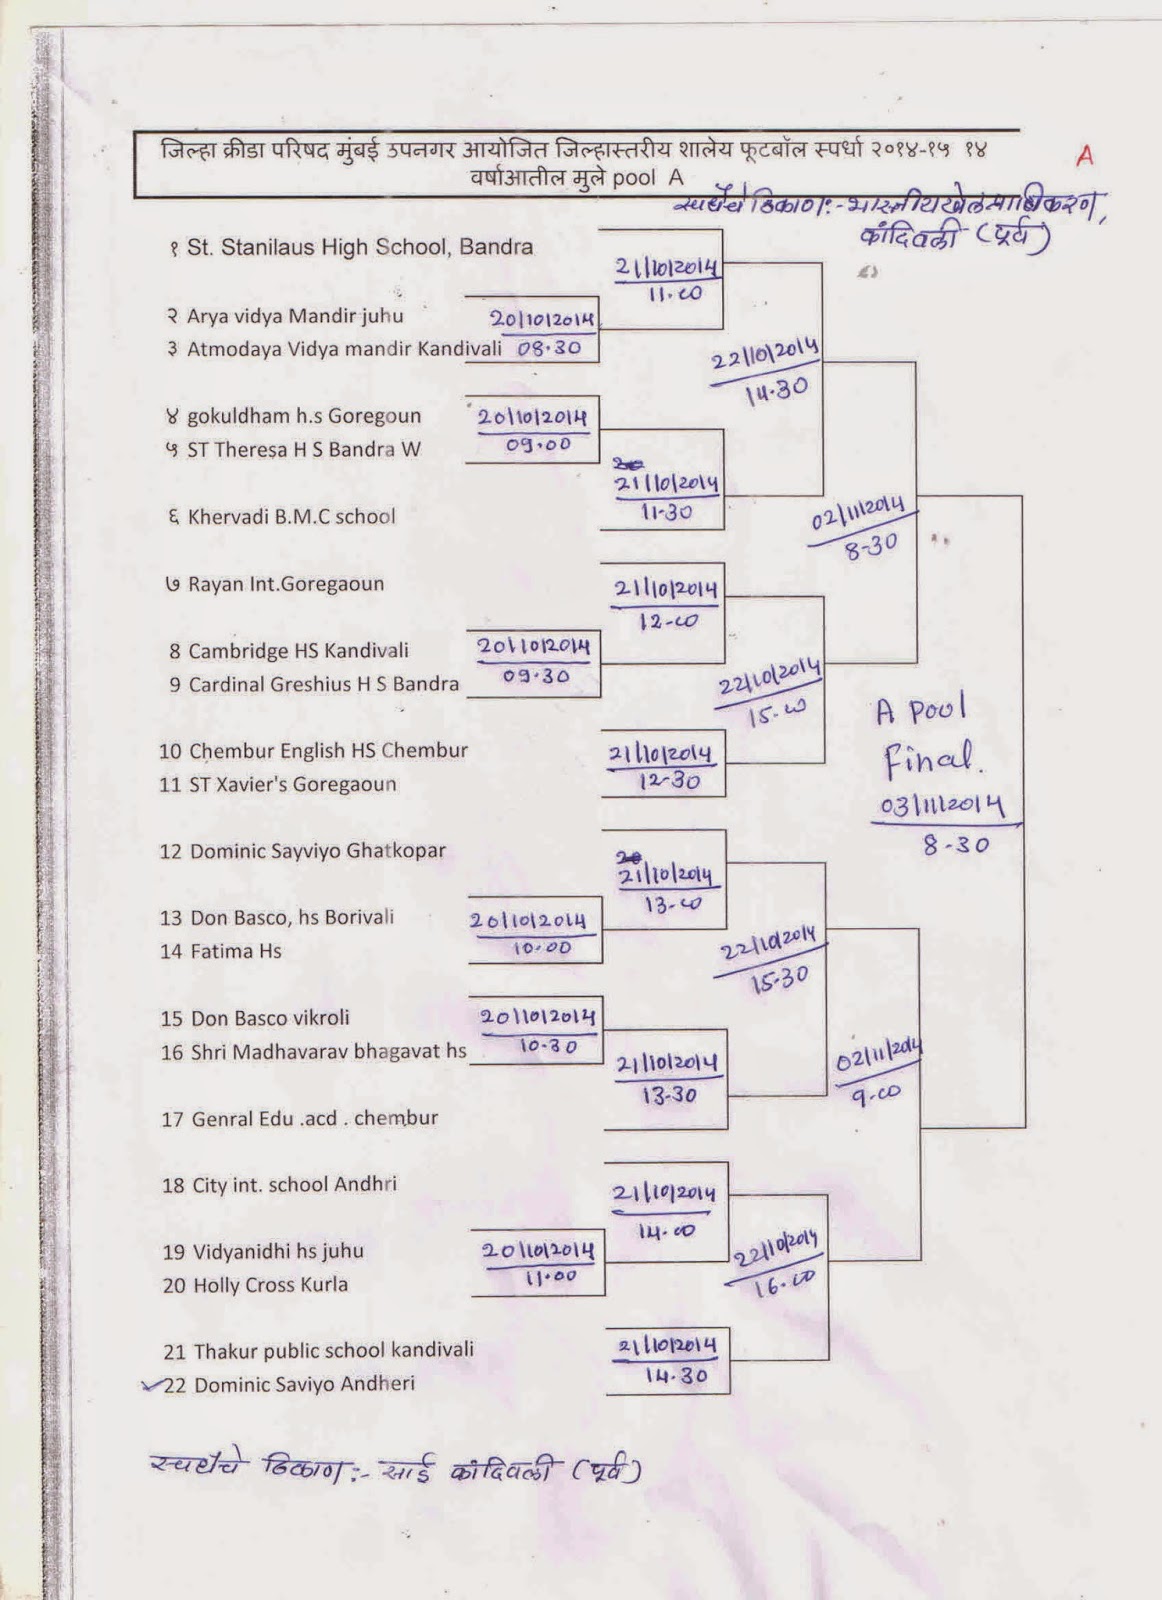 जिल्हा क्रीडा परिषद मुंबई उपनगर आयोजित जिल्हास्तरीय शालेय फूटबॉल स्पर्धा २०१४-१५ १४
वर्षाआतील मुले pool A
A
स्पर्धेचे ठिकाण:- भारतीय खेल प्राधिकरण,
कांदिवली (पूर्व)
१ St. Stanilaus High School, Bandra
21/10/2014
11.00
२ Arya vidya Mandir juhu
20/10/2014
३ Atmodaya Vidya mandir Kandivali
08.30
22/10/2014
14.30
४ gokuldham h.s Goregoun
20/10/2014
५ ST Theresa H S Bandra W
09.00
21/10/2014
11-30
६ Khervadi B.M.C school
02/11/2014
8-30
७ Rayan Int.Goregaoun
21/10/2014
12-00
8 Cambridge HS Kandivali
20/10/2014
9 Cardinal Greshius H S Bandra
09.30
22/10/2014
15.00
A Pool
Final.
03/11/2014
8-30
10 Chembur English HS Chembur
21/10/2014
11 ST Xavier's Goregaoun
12-30
12 Dominic Sayviyo Ghatkopar
21/10/2014
13-00
13 Don Basco, hs Borivali
20/10/2014
14 Fatima Hs
10.00
22/10/2014
15.30
15 Don Basco vikroli
20/10/2014
16 Shri Madhavarav bhagavat hs
10.30
21/10/2014
13-30
02/11/2014
9.00
17 Genral Edu .acd . chembur
18 City int. school Andhri
21/10/2014
14.00
19 Vidyanidhi hs juhu
20/10/2014
20 Holly Cross Kurla
11.00
22/10/2014
16.00
21 Thakur public school kandivali
21/10/2014
22 Dominic Saviyo Andheri
14.30
स्पर्धेचे ठिकाण:- साई कांदिवली (पूर्व)